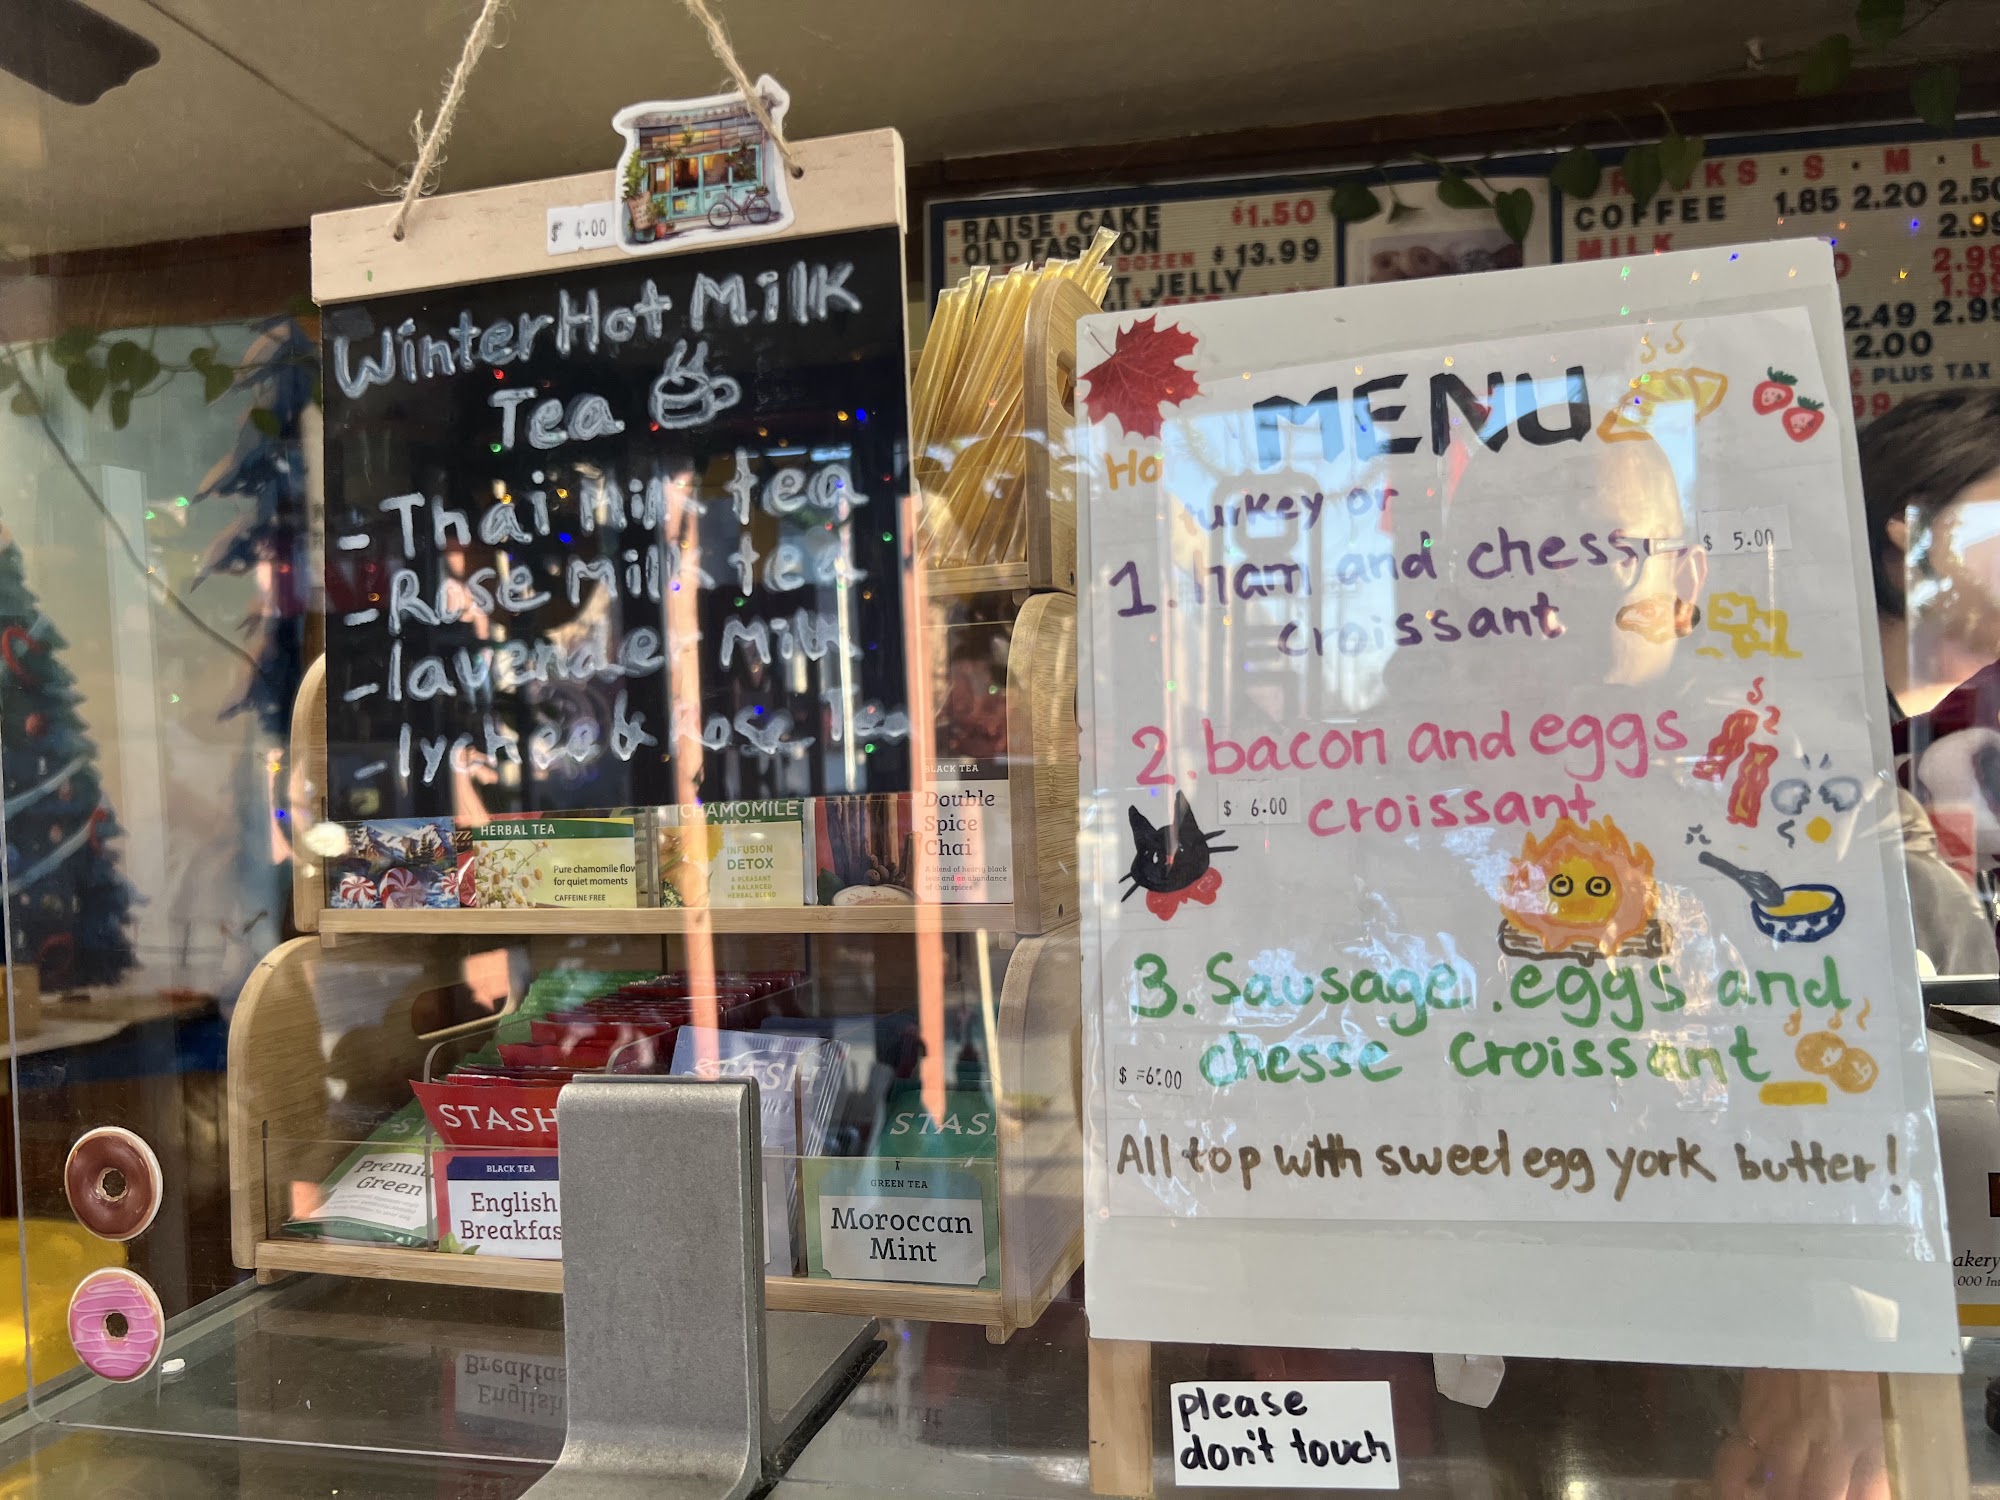 $ 4.00
Winter Hot Milk
Tea
- Thai Milk tea
- Rose Milk tea
- lavender Milk
- lychee & Rose Tea
HERBAL TEA
Pure chamomile flow
for quiet moments
CAFFEINE FREE
CHAMOMILE
INFUSION
DETOX
A PLEASANT
& BALANCED
HERBAL BLEND
BLACK TEA
Double
Spice
Chai
A blend of hearty black
teas and an abundance
of chai spices
STASH
Premi
Green
STASH
BLACK TEA
English
Breakfas
STASH
GREEN TEA
Moroccan
Mint
- RAISE, CAKE $1.50
- OLD FASHION
DOZEN $13.99
JELLY
S · M · L
COFFEE 1.85 2.20 2.50
MILK 2.99
2.99
1.99
2.49 2.99
2.00
PLUS TAX
MENU
Ho
turkey or
1. Ham and chesse
croissant
$ 5.00
2. bacon and eggs
croissant
$ 6.00
3. Sausage, eggs and
chesse croissant
$ 6.00
All top with sweet egg york butter!
please
don't touch
akery